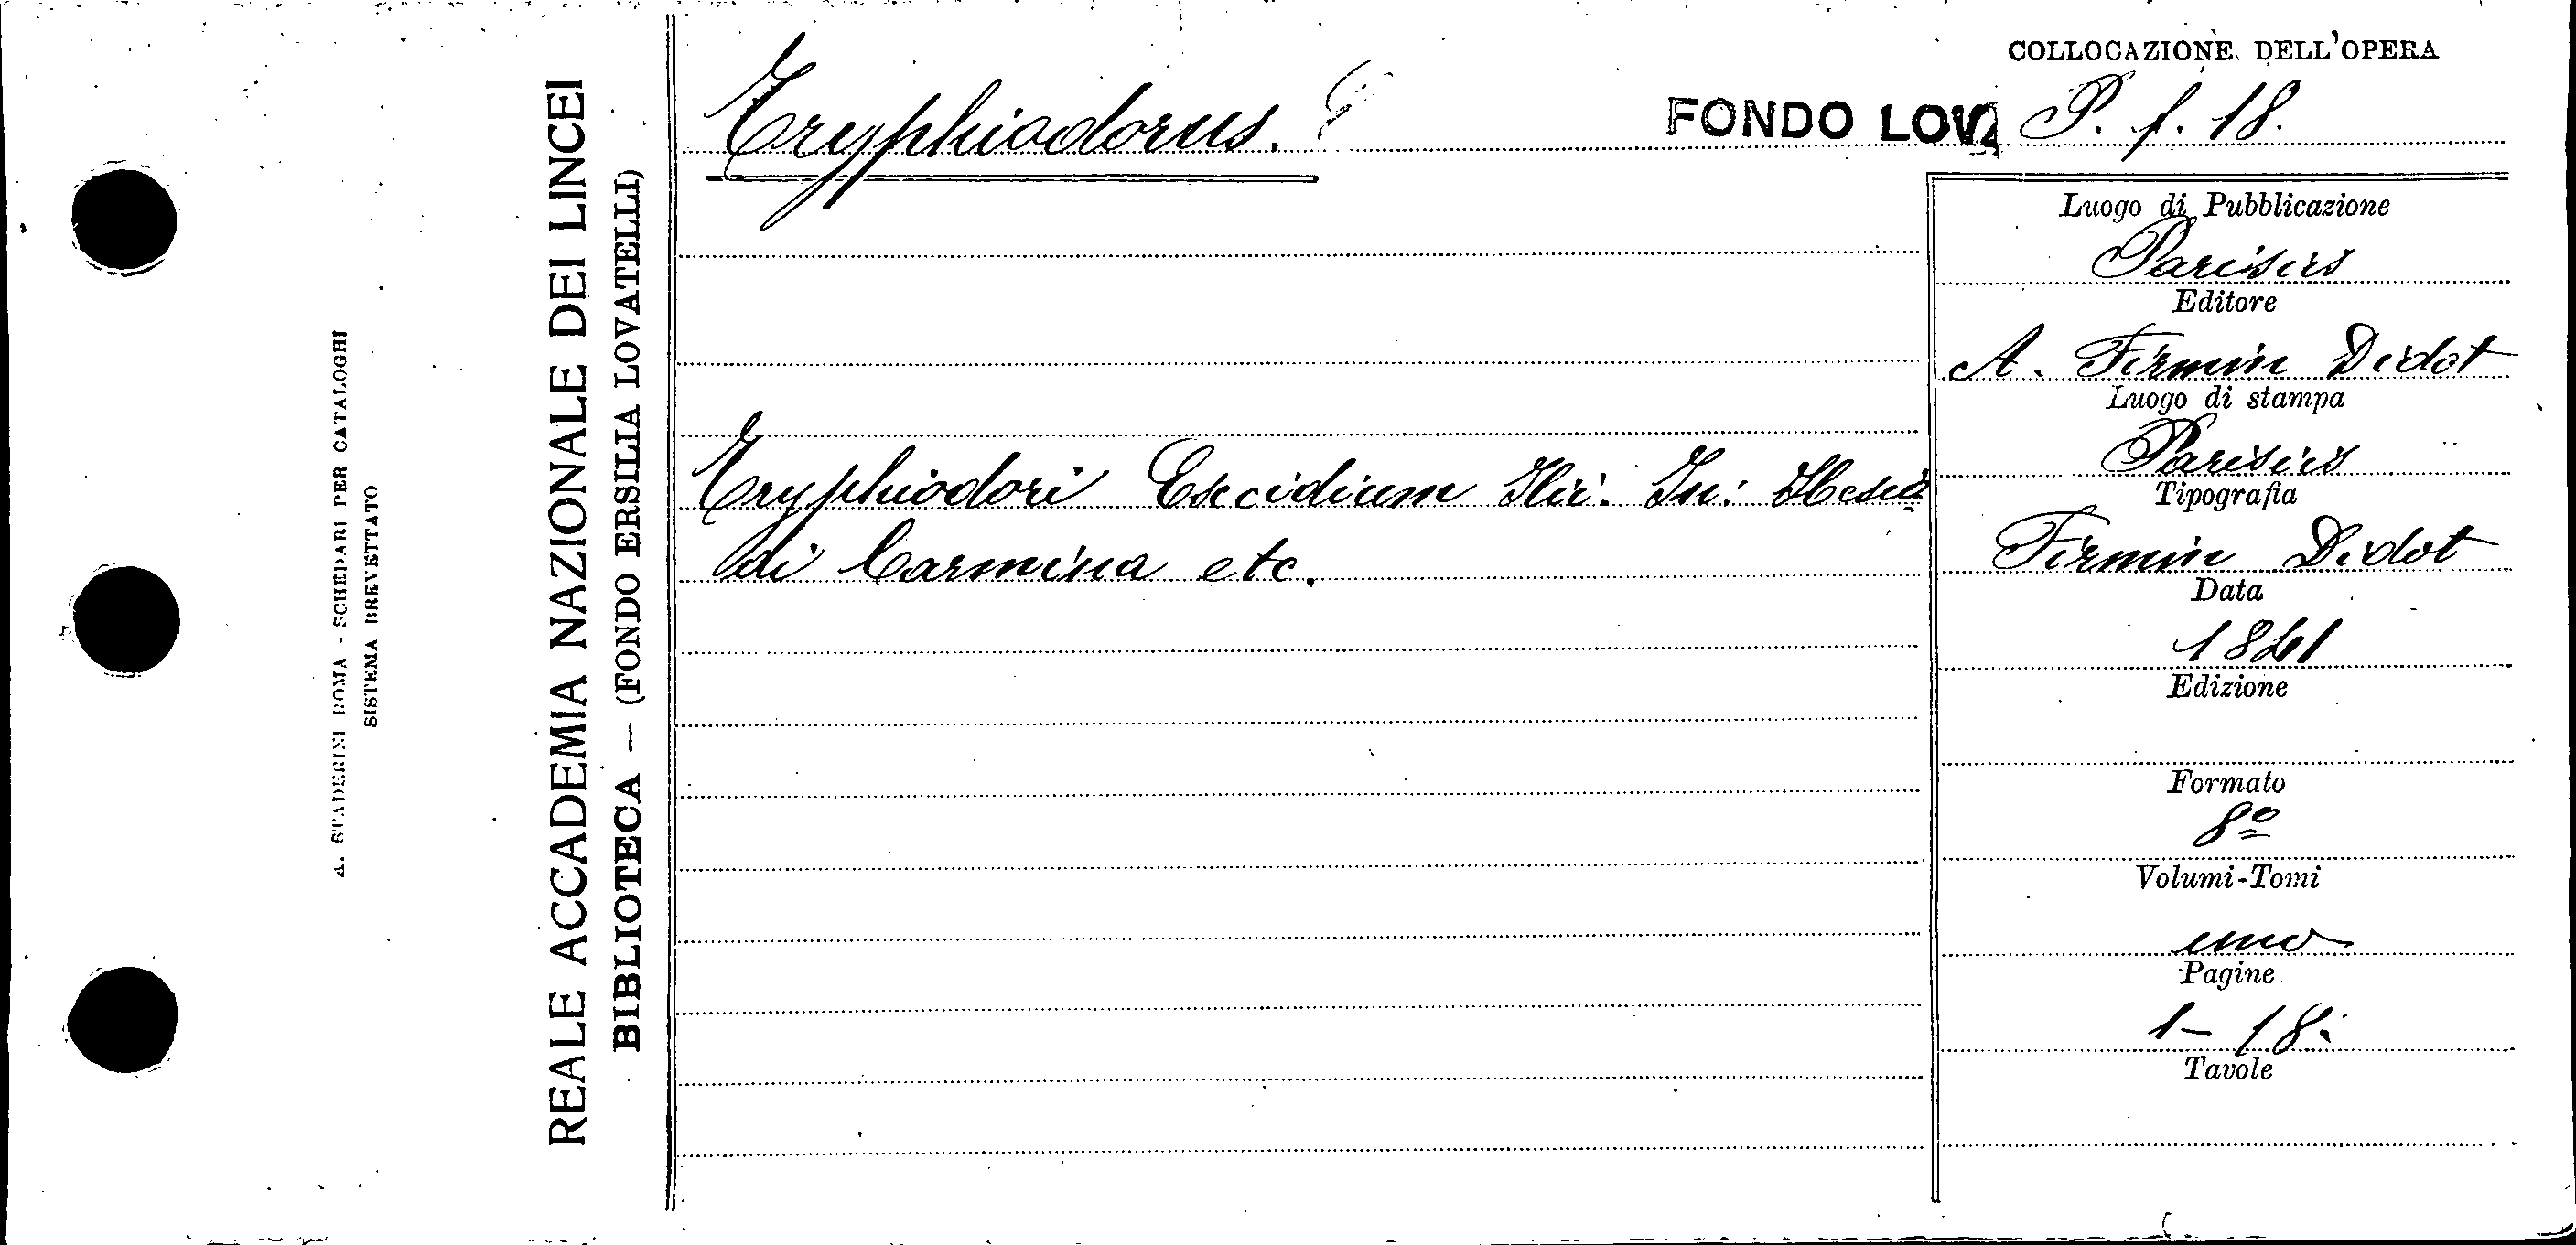 COLLOCAZIONE DELL'OPERA
Tryphiodorus.
FONDO LOVA P. f. 18.
Luogo di Pubblicazione
Parisiis
Editore
A. Firmin Didot
Luogo di stampa
Parisiis
Tipografia
Firmin Didot
Data
1841
Edizione
Formato
8º
Volumi-Tomi
uno
Pagine
1-18.
Tavole
Tryphiodori Excidium Ilii. In: Hesio
di Carmina etc.
REALE ACCADEMIA NAZIONALE DEI LINCEI
BIBLIOTECA — (FONDO ERSILIA LOVATELLI)
A. STADERINI ROMA - SCHEDARI PER CATALOGHI
SISTEMA BREVETTATO